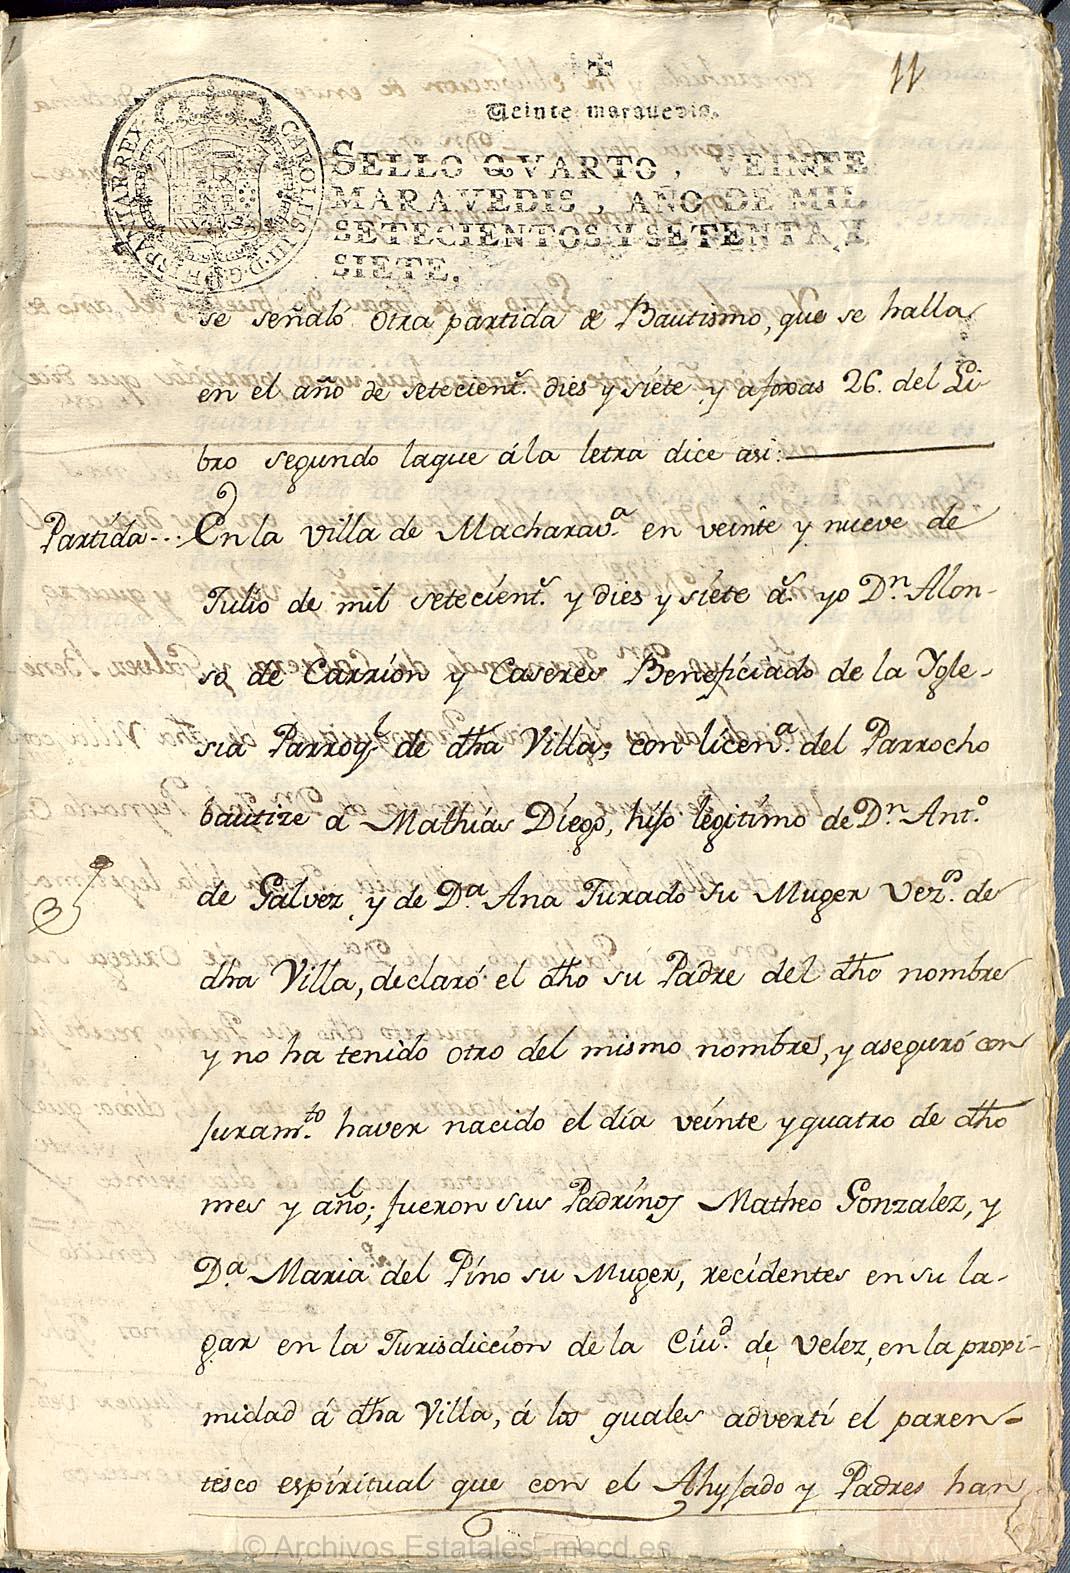 11
Veinte maravedis.
SELLO QVARTO, VEINTE
MARAVEDIS, AÑO DE MIL
SETECIENTOS Y SETENTA Y
SIETE.
CAROLUS III D.G. HISPANIAR REX
se señaló otra partida de Bautismo, que se halla
en el año de setecient.s dies y siete y afoxas 26. del Li-
bro segundo laque á la letra dice asi:
Partida... En la villa de Macharav.a en veinte y nueve de
Julio de mil setecient.s y dies y siete a.s yo D.n Alon-
so de Carrion y Caseres Beneficiado de la Ygle-
sia Parroq.l de dha Villa, con licen.a del Parrocho
bautize a Mathias Diego, hijo legitimo de D.n Ant.o
de Galvez y de D.a Ana Jurado su Muger Vez.os de
dha Villa, declaró el dho su Padre del dho nombre
y no ha tenido otro del mismo nombre, y aseguró con
juram.to haver nacido el día veinte y quatro de dho
mes y año; fueron sus Padrinos Matheo Gonzalez, y
D.a Maria del Pino su Muger, recidentes en su la-
gar en la Jurisdiccion de la Ciu.d de Velez, en la proxi-
midad á dha Villa, á los quales advertí el paren-
tesco espiritual que con el Ahyjado y Padres han
© Archivos Estatales -mecd.es